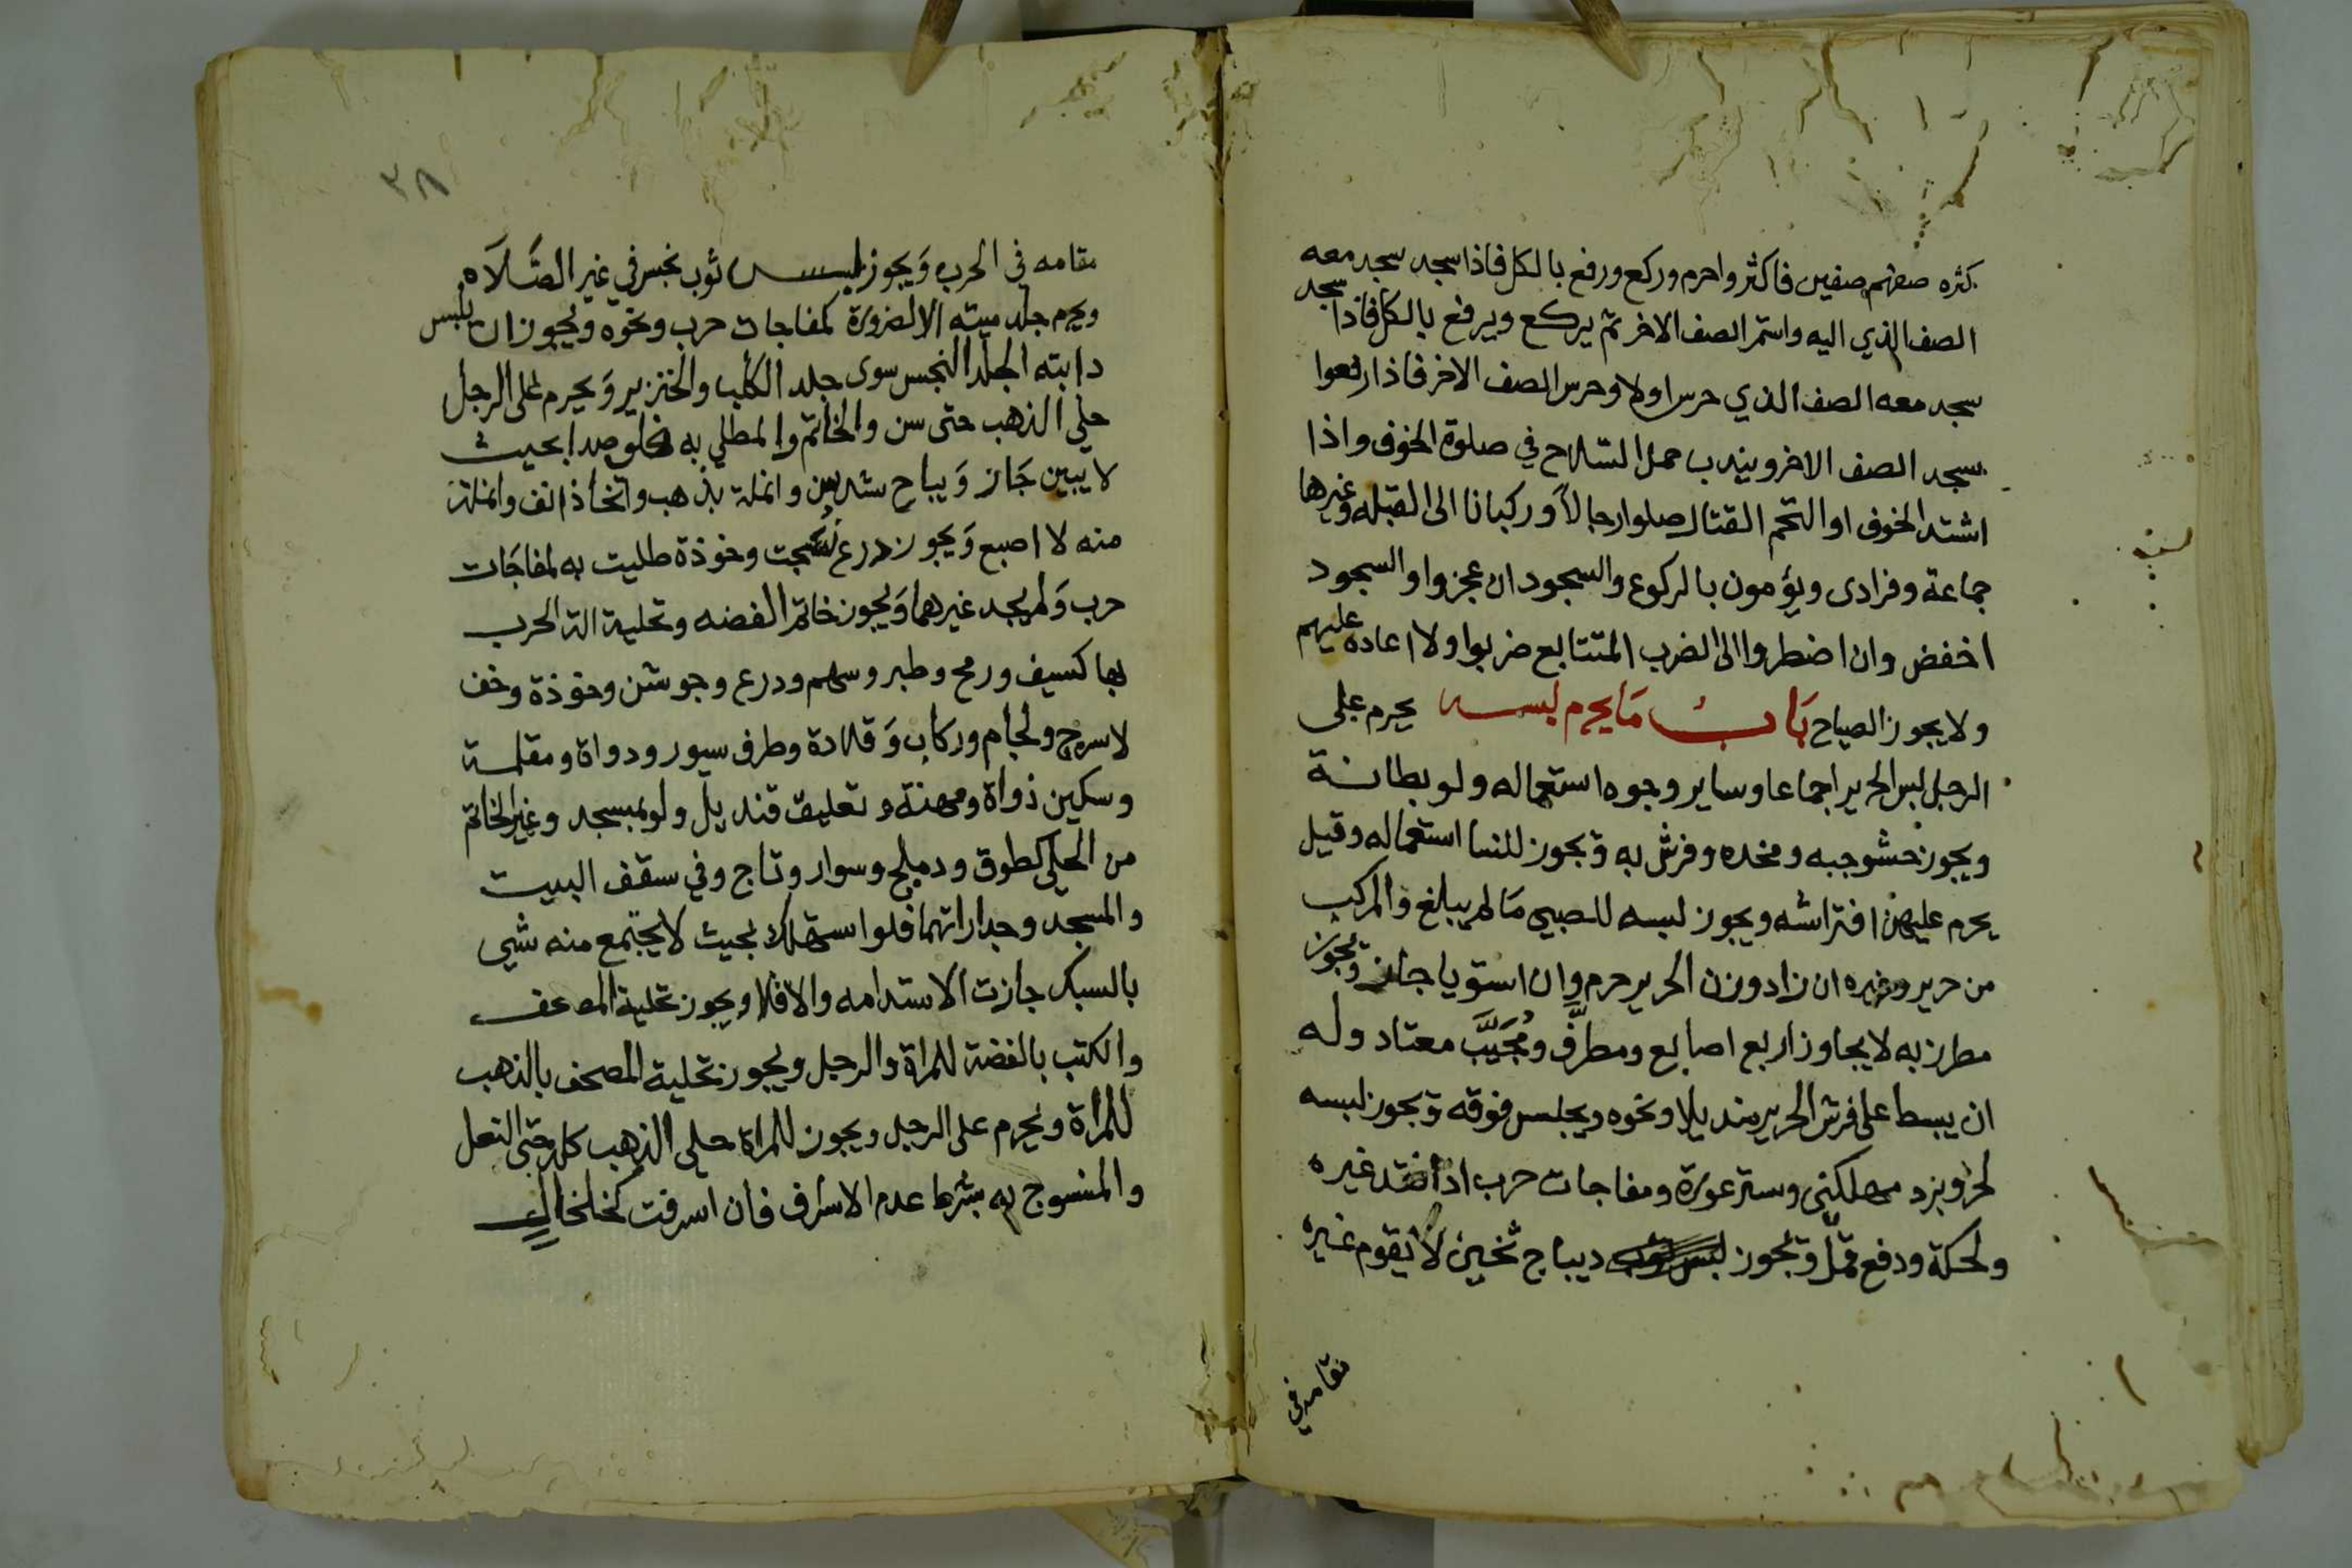 كثره صفهم صفين فاكثر واحرم وركع ورفع بالكل فاذا سجد سجد معه
الصف الذي اليه واستمر الصف الاخر ثم يركع ويرفع بالكل فاذا سجد
سجد معه الصف الذي حرس اولا وحرس الصف الاخر فاذا رفعوا
سجد الصف الاخر ويندب حمل السلاح في صلوة الخوف واذا
اشتد الخوف او التحم القتال صلوا رجالا وركبانا الى القبله وغيرها
جماعة وفرادى ويؤمون بالركوع والسجود ان عجزوا والسجود
اخفض وان اضطروا الى الضرب المتتابع ضربوا ولا اعاده عليهم
ولا يجوز الصياح بَابُ مَا يحرم لبسه يحرم على
الرجل لبس الحرير اجماعا وساير وجوه استعماله ولو بطانة
ويجوز حشو جبه ومخده وفرش به ويجوز للنسا استعماله وقيل
يحرم عليهن افتراشه ويجوز لبسه للصبي مَا لم يبلغ والمركب
من حرير وغيره ان زاد وزن الحرير حرم وان استويا جاز ويجوز
مطرز به لا يجاوز اربع اصابع ومطرَّف ومُجَيَّب معتاد وله
ان يبسط على فرش الحرير منديلا ونحوه ويجلس فوقه ويجوز لبسه
لحر وبرد مهلكين وستر عورة ومفاجات حرب اذا فقد غيره
ولحكة ودفع قمل ويجوز لبس ديباج ثخين لا يقوم غيره
مقامه في
٣٨
مقامه في الحرب وَيجوز لبس ثوب نجس في غير الصَّلَاه
ويحرم جلد ميته الا لضرورة كمفاجات حرب ونحوه ويجوز ان يلبس
دابته الجلد النجس سوى جلد الكلب والخنزير وَيحرم على الرجل
حلي الذهب حتى سن والخاتم والمطلي به فلو صدا بحيث
لا يبين جَاز وَيباح شد سن وانملة بذهب واتخاذ انف وانملة
منه لا اصبع وَيجوز درع نُسجت وخوذة طليت به لمفاجَات
حرب وَلم يجد غيرهما وَيجوز خاتم الفضه وتحلية الة الحرب
بها كسيف ورمح وطبر وسهم ودرع وجوشن وخوذة وخف
لا سرج ولجام وركاب وَقلادة وطرف سيور ودواة ومقلمة
وسكين دواة ومهنة وتعليق قنديل ولو بمسجد وغير الخاتم
من الحلي كطوق ودملج وسوار وتاج وفي سقف البيت
والمسجد وجداراتهما فلو استهلك بحيث لا يجتمع منه شي
بالسبك جازت الاستدامه والا فلا ويجوز تحلية المصحف
والكتب بالفضة للمراة والرجل ويجوز تحلية المصحف بالذهب
للمرأة ويحرم على الرجل ويجوز للمراة حلي الذهب كله حتى النعل
والمنسوج به بشرط عدم الاسراف فان اسرفت كخلخال